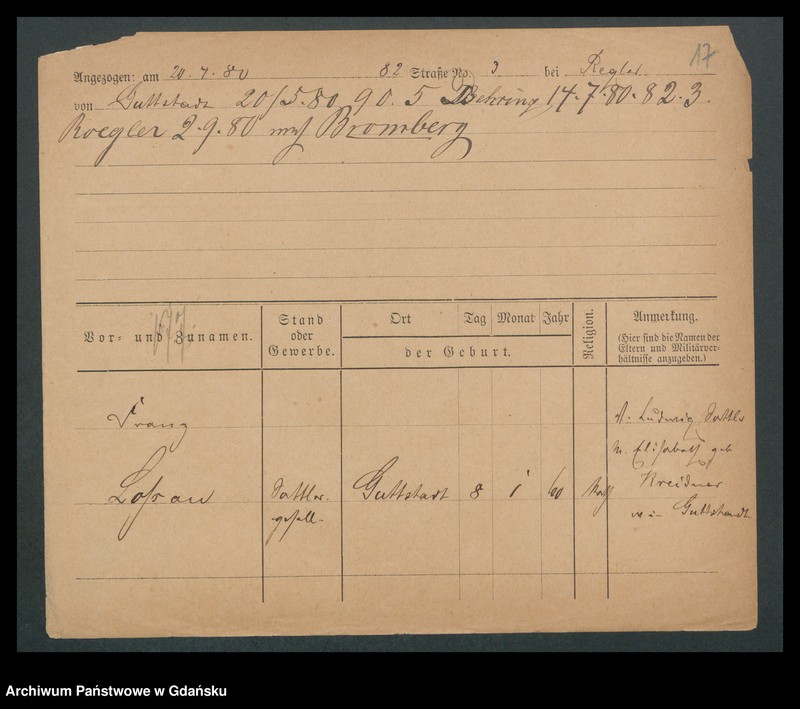 17
Angezogen: am 20.7.80 82 Straße No. 3 bei Regler
von Guttstadt 20/5.80 90. 5 Behring 14.7.80.82.3.
Roegler 2.9.80 nach Bromberg
Vor- und Zunamen.
Stand oder Gewerbe.
Ort Tag Monat Jahr
der Geburt.
Religion.
Anmerkung.
(Hier sind die Namen der
Eltern und Militärver-
hältnisse anzugeben.)
Franz
Losrau
Sattler-
gesell
Guttstadt 8 1 60
kath
V. Ludwig Sattler
M. Elisabeth geb
Kreidner
in Guttstadt
Archiwum Państwowe w Gdańsku